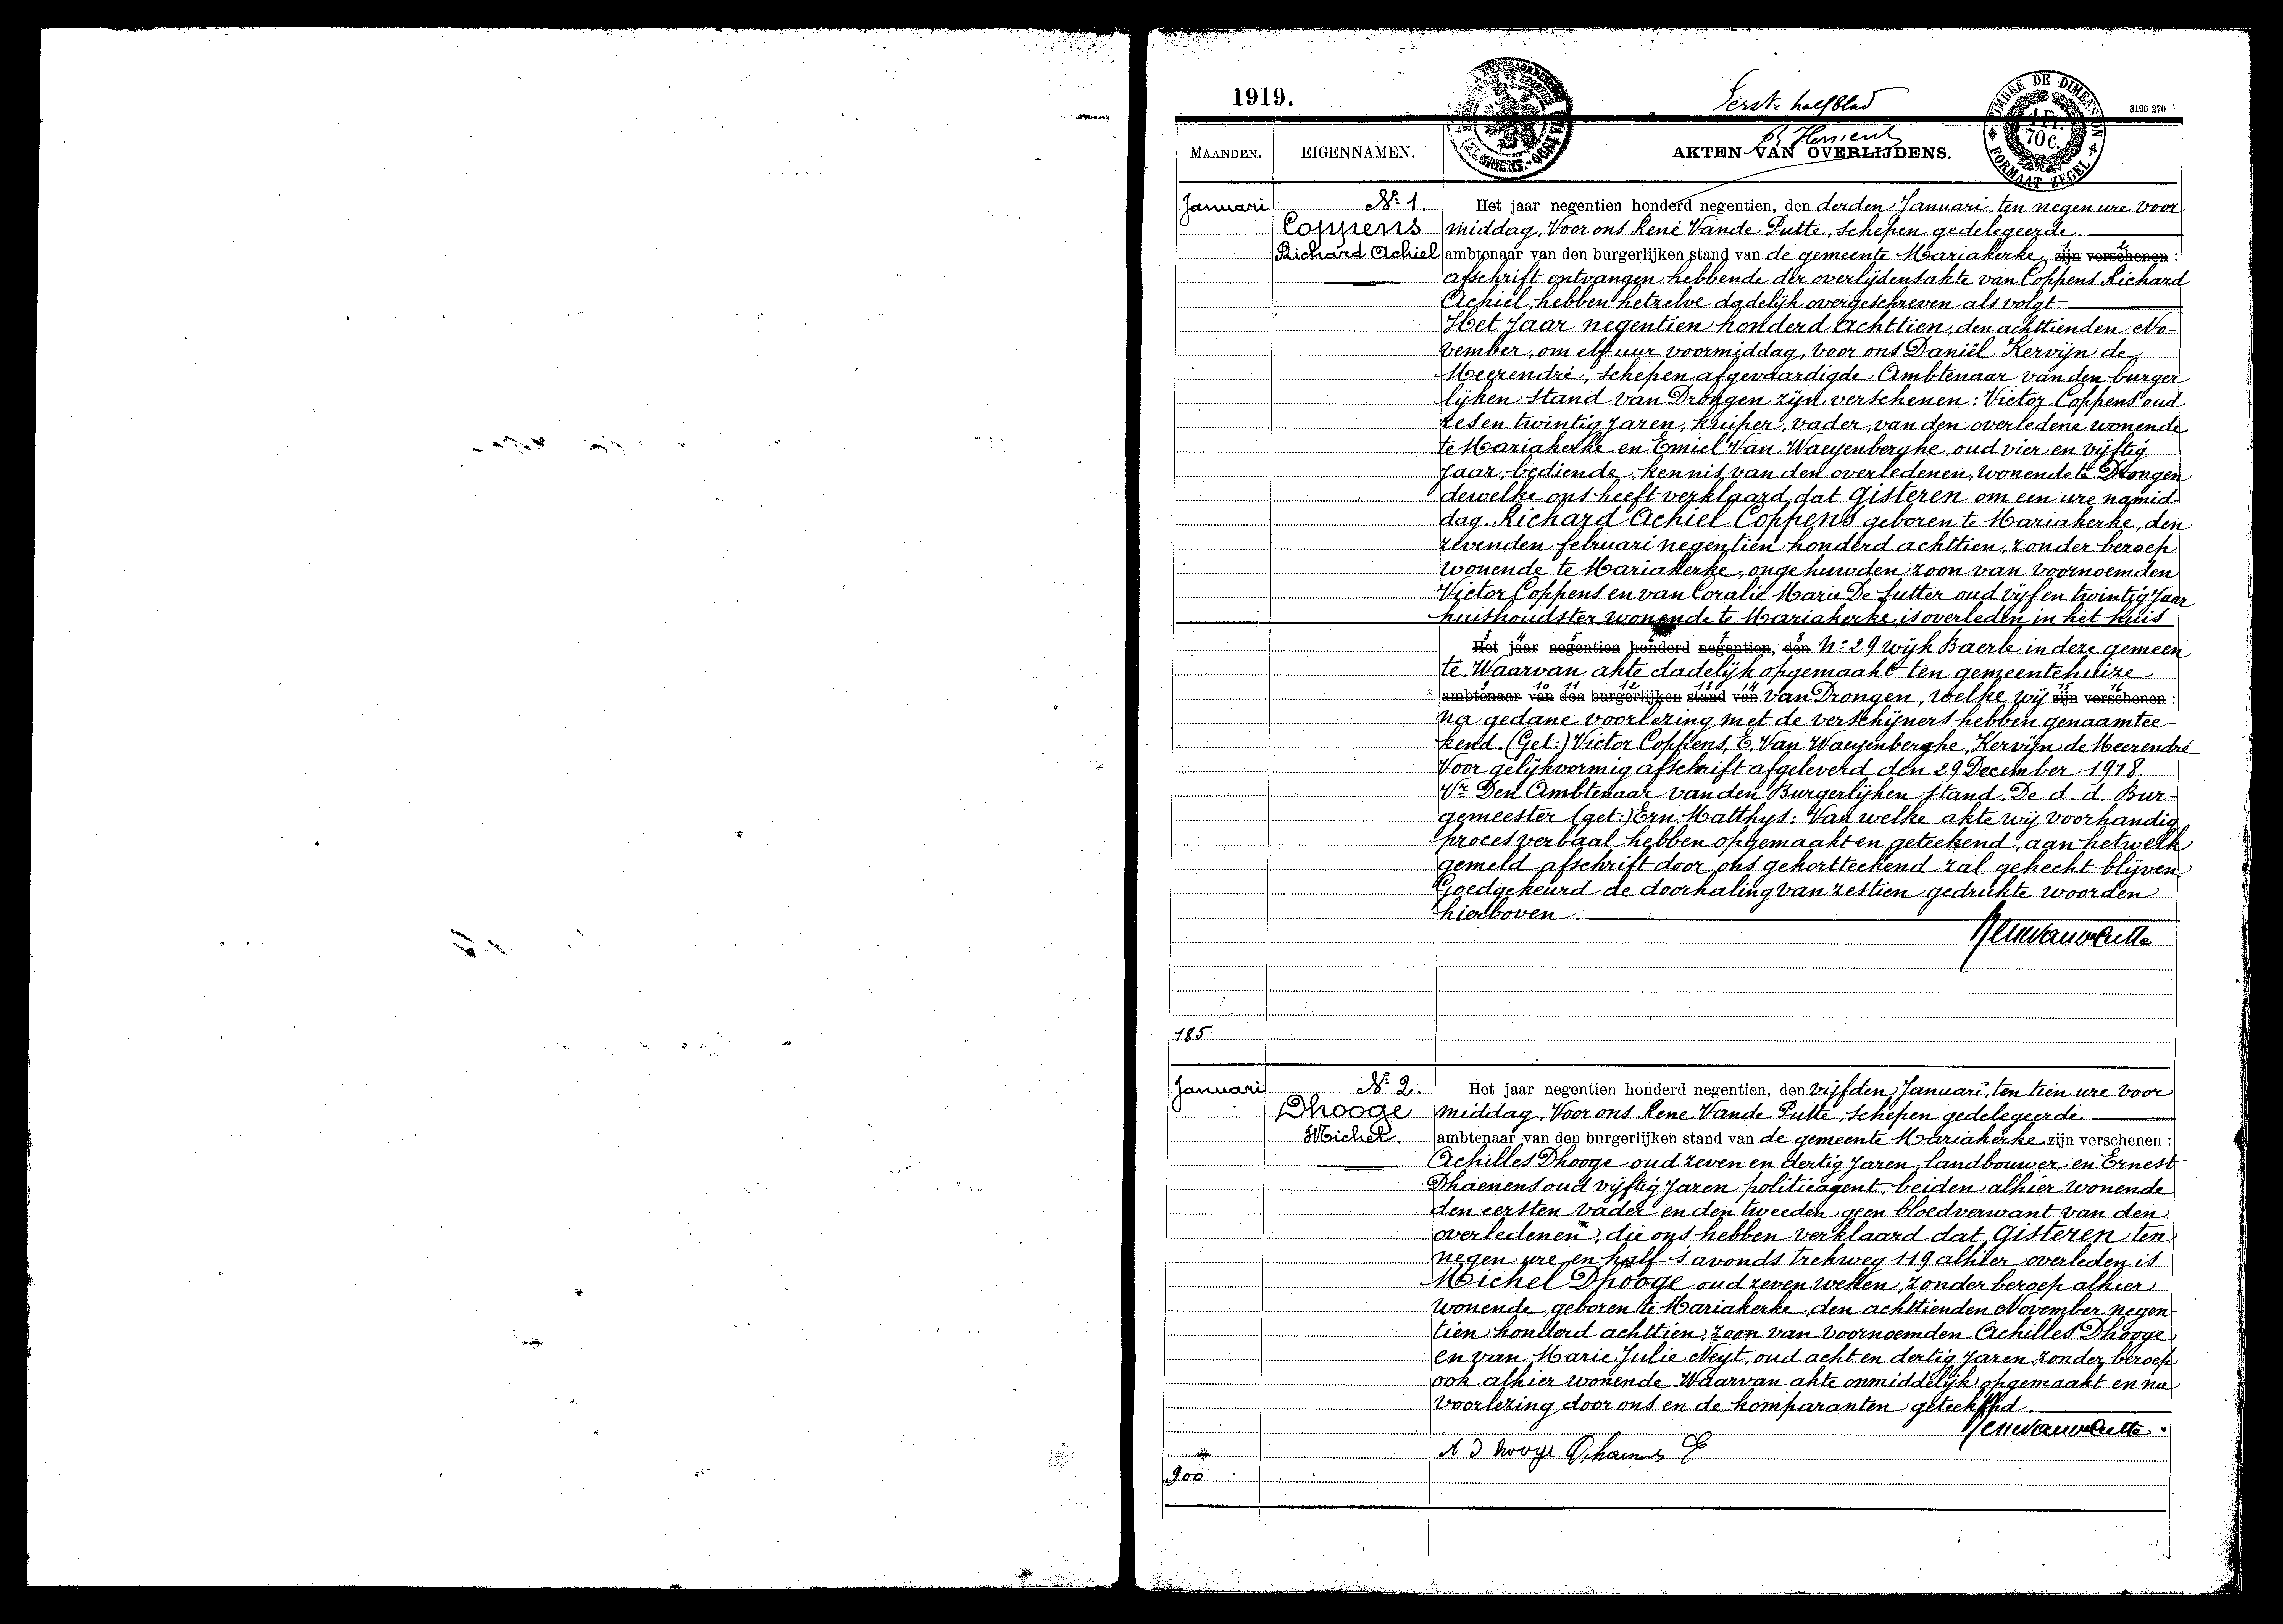 1919.
Eerste halfblad
3196 270
TIMBRE DE DIMENSION
1 Fr.
70 c.
FORMAAT ZEGEL
MAANDEN.
EIGENNAMEN.
AKTEN VAN OVERLIJDENS.
Januari
Nr 1.
Coppens
Richard Achiel
Het jaar negentien honderd negentien, den derden Januari, ten negen ure voor
middag, Voor ons René Vande Putte, schepen gedelegeerde
ambtenaar van den burgerlijken stand van de gemeente Mariakerke, zijn verschenen :
afschrift ontvangen hebbende der overlijdensakte van Coppens Richard
Achiel, hebben hetzelve dadelijk overgeschreven als volgt
Het Jaar negentien honderd Achttien, den achttienden No-
vember, om elf uur voormiddag, voor ons Daniël Kervijn de
Meerendré, schepen afgevaardigde Ambtenaar van den burger
lijken Stand van Drongen zijn verschenen : Victor Coppens oud
zes en twintig Jaren, kuiper, vader, van den overledene wonende
te Mariakerke en Emiel Van Waeyenberghe oud vier en vijftig
Jaar, bediende, kennis van den overledenen, wonende te Drongen
dewelke ons heeft verklaard dat Gisteren om een ure namid-
dag. Richard Achiel Coppens geboren te Mariakerke, den
zevenden februari negentien honderd achttien, zonder beroep
wonende te Mariakerke, ongehuwden zoon van voornoemden
Victor Coppens en van Coralie Marie De Sutter oud vijf en twintig Jaar
huishoudster wonende te Mariakerke is overleden in het huis
Het jaar negentien honderd negentien, den N: 29 wijk Baerle in deze gemeen
te. Waarvan akte dadelijk opgemaakt ten gemeentehuize
ambtenaar van den burgerlijken stand van van Drongen, welke wij zijn verschenen :
na gedane voorlezing met de verschijners hebben genaamtee-
kend. (Get:) Victor Coppens, E. Van Waeyenberghe, Kervijn de Meerendré
Voor gelijkvormig afschrift afgeleverd den 29 December 1918.
Vr Den Ambtenaar van den Burgerlijken Stand. De d. d. Bur-
gemeester (get:) Ern. Matthys: Van welke akte wij voorhandig
proces verbaal hebben opgemaakt en geteekend, aan hetwelk
gemeld afschrift door ons gekortteekend zal gehecht blijven
Goedgekeurd de doorhaling van zestien gedrukte woorden
hierboven.
185
Januari
Nr 2.
Dhooge
Michel.
Het jaar negentien honderd negentien, den vijfden Januari, ten tien ure voor
middag. Voor ons Rene Vande Putte, schepen gedelegeerde
ambtenaar van den burgerlijken stand van de gemeente Mariakerke zijn verschenen :
Achilles Dhooge oud zeven en dertig Jaren, landbouwer en Ernest
Dhaenens oud vijftig Jaren politieagent, beiden alhier wonende
den eersten vader en den tweeden geen bloedverwant van den
overledenen, die ons hebben verklaard dat Gisteren ten
negen ure en half 's avonds trekweg 119 alhier overleden is
Michel Dhooge oud zeven weken, zonder beroep alhier
wonende, geboren te Mariakerke, den achttienden November negen-
tien honderd achttien, zoon van voornoemden Achilles Dhooge
en van Marie Julie Neyt, oud acht en dertig Jaren zonder beroep
ook alhier wonende Waarvan akte onmiddelijk opgemaakt en na
voorlezing door ons en de komparanten geteekend.
A Dhooge Dhaenens E
200